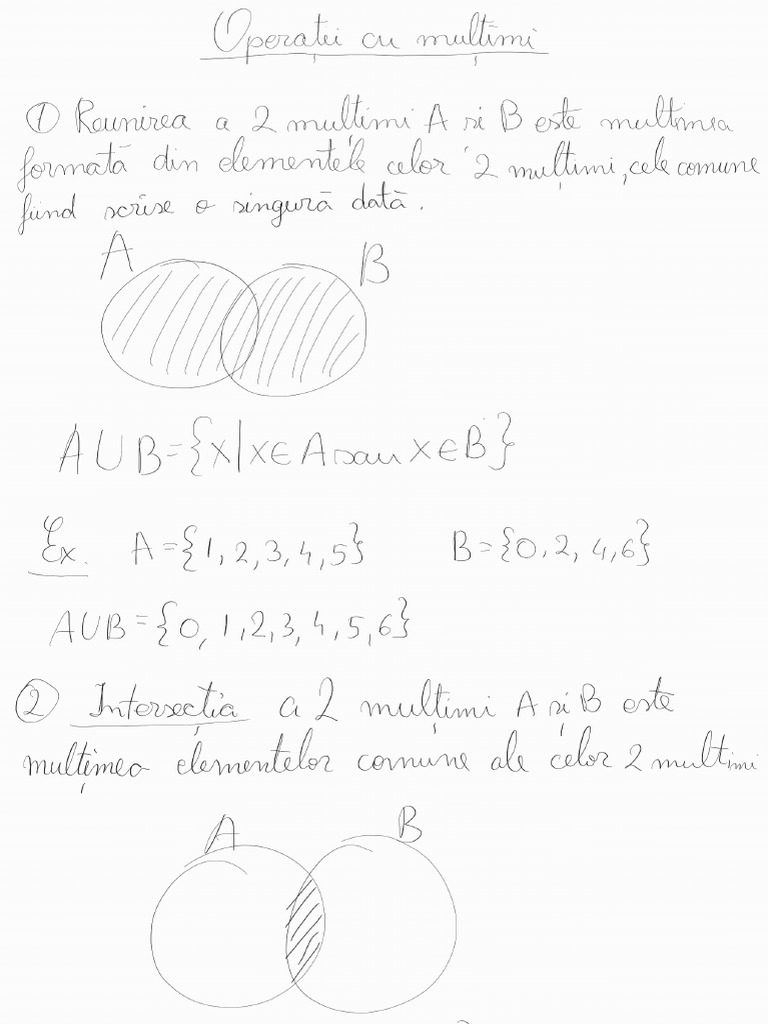 Operatei cu mulțimi
1 Reunirea a 2 multimi A si B este multimea
formată din elementele celor 2 mulțimi, cele comune
fiind scrise o singură dată.
A B
A∪B={x|x∈A sau x∈B}
Ex. A={1,2,3,4,5} B={0,2,4,6}
A∪B={0,1,2,3,4,5,6}
2 Intersecția a 2 mulțimi A și B este
mulțimea elementelor comune ale celor 2 multimi
A B